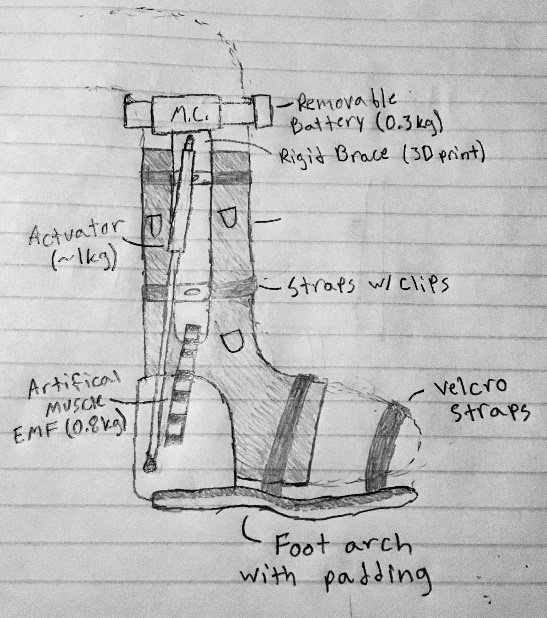 M.C.
Removable
Battery (0.3kg)
Rigid Brace (3D print)
Actuator
(~1kg)
Straps w/ clips
Artifical
Muscle
EMF (0.8kg)
Velcro
Straps
Foot arch
with padding